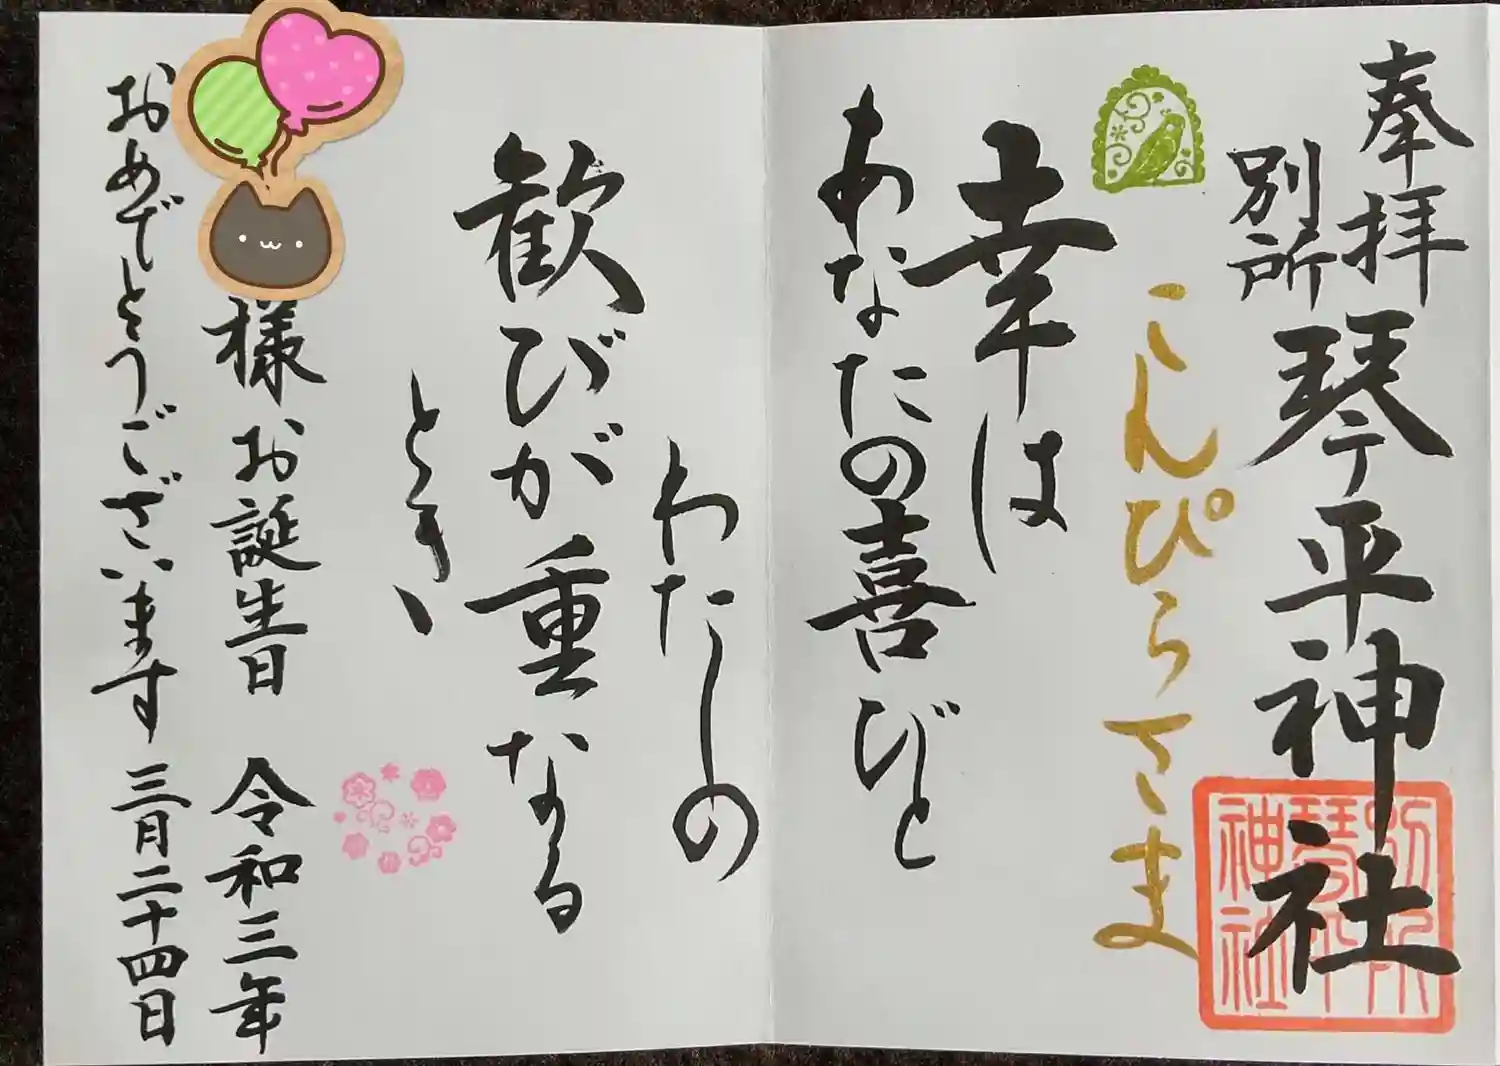 奉拝
別所
琴平神社
こんぴらさま
幸は
あなたの喜びと
わたしの
歓びが重なる
とき、
様 お誕生日 令和三年
おめでとうございます 三月二十四日
別所
琴平
神社